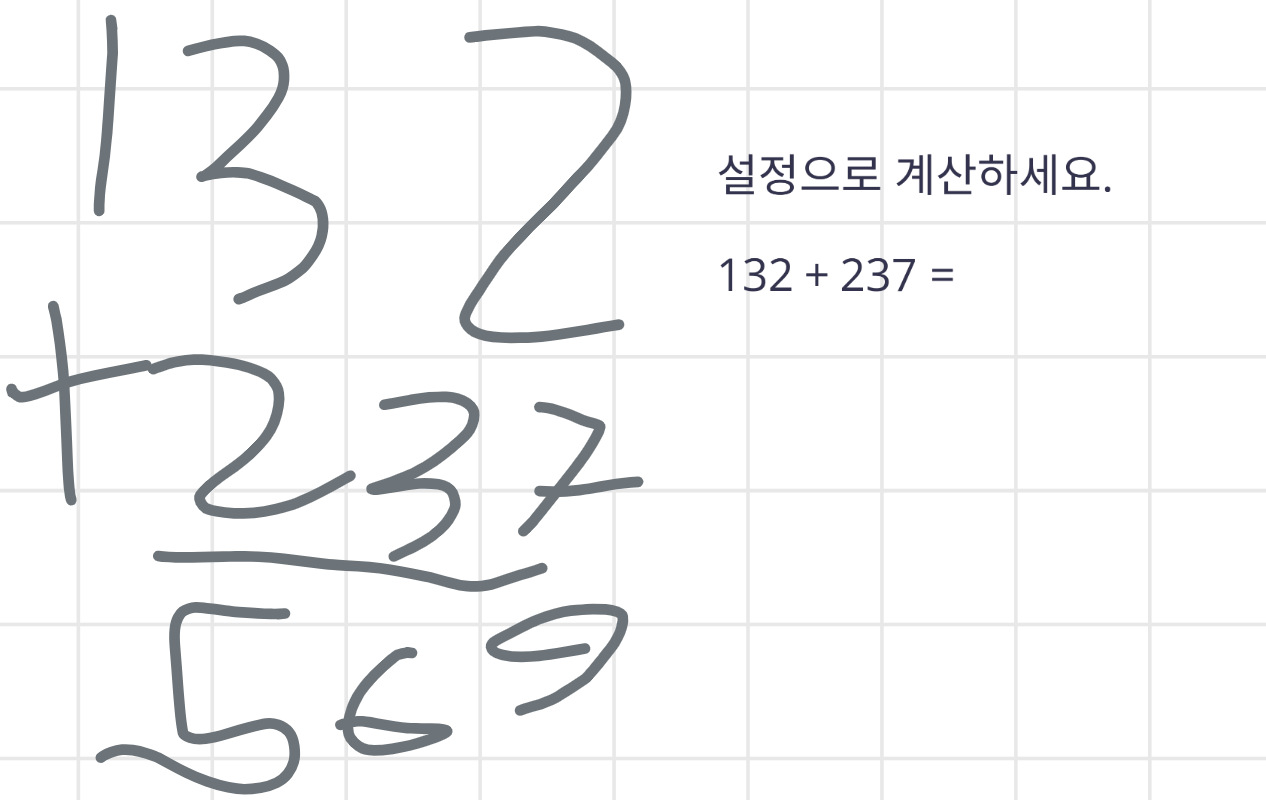 132
+237
569
설정으로 계산하세요.
132 + 237 =